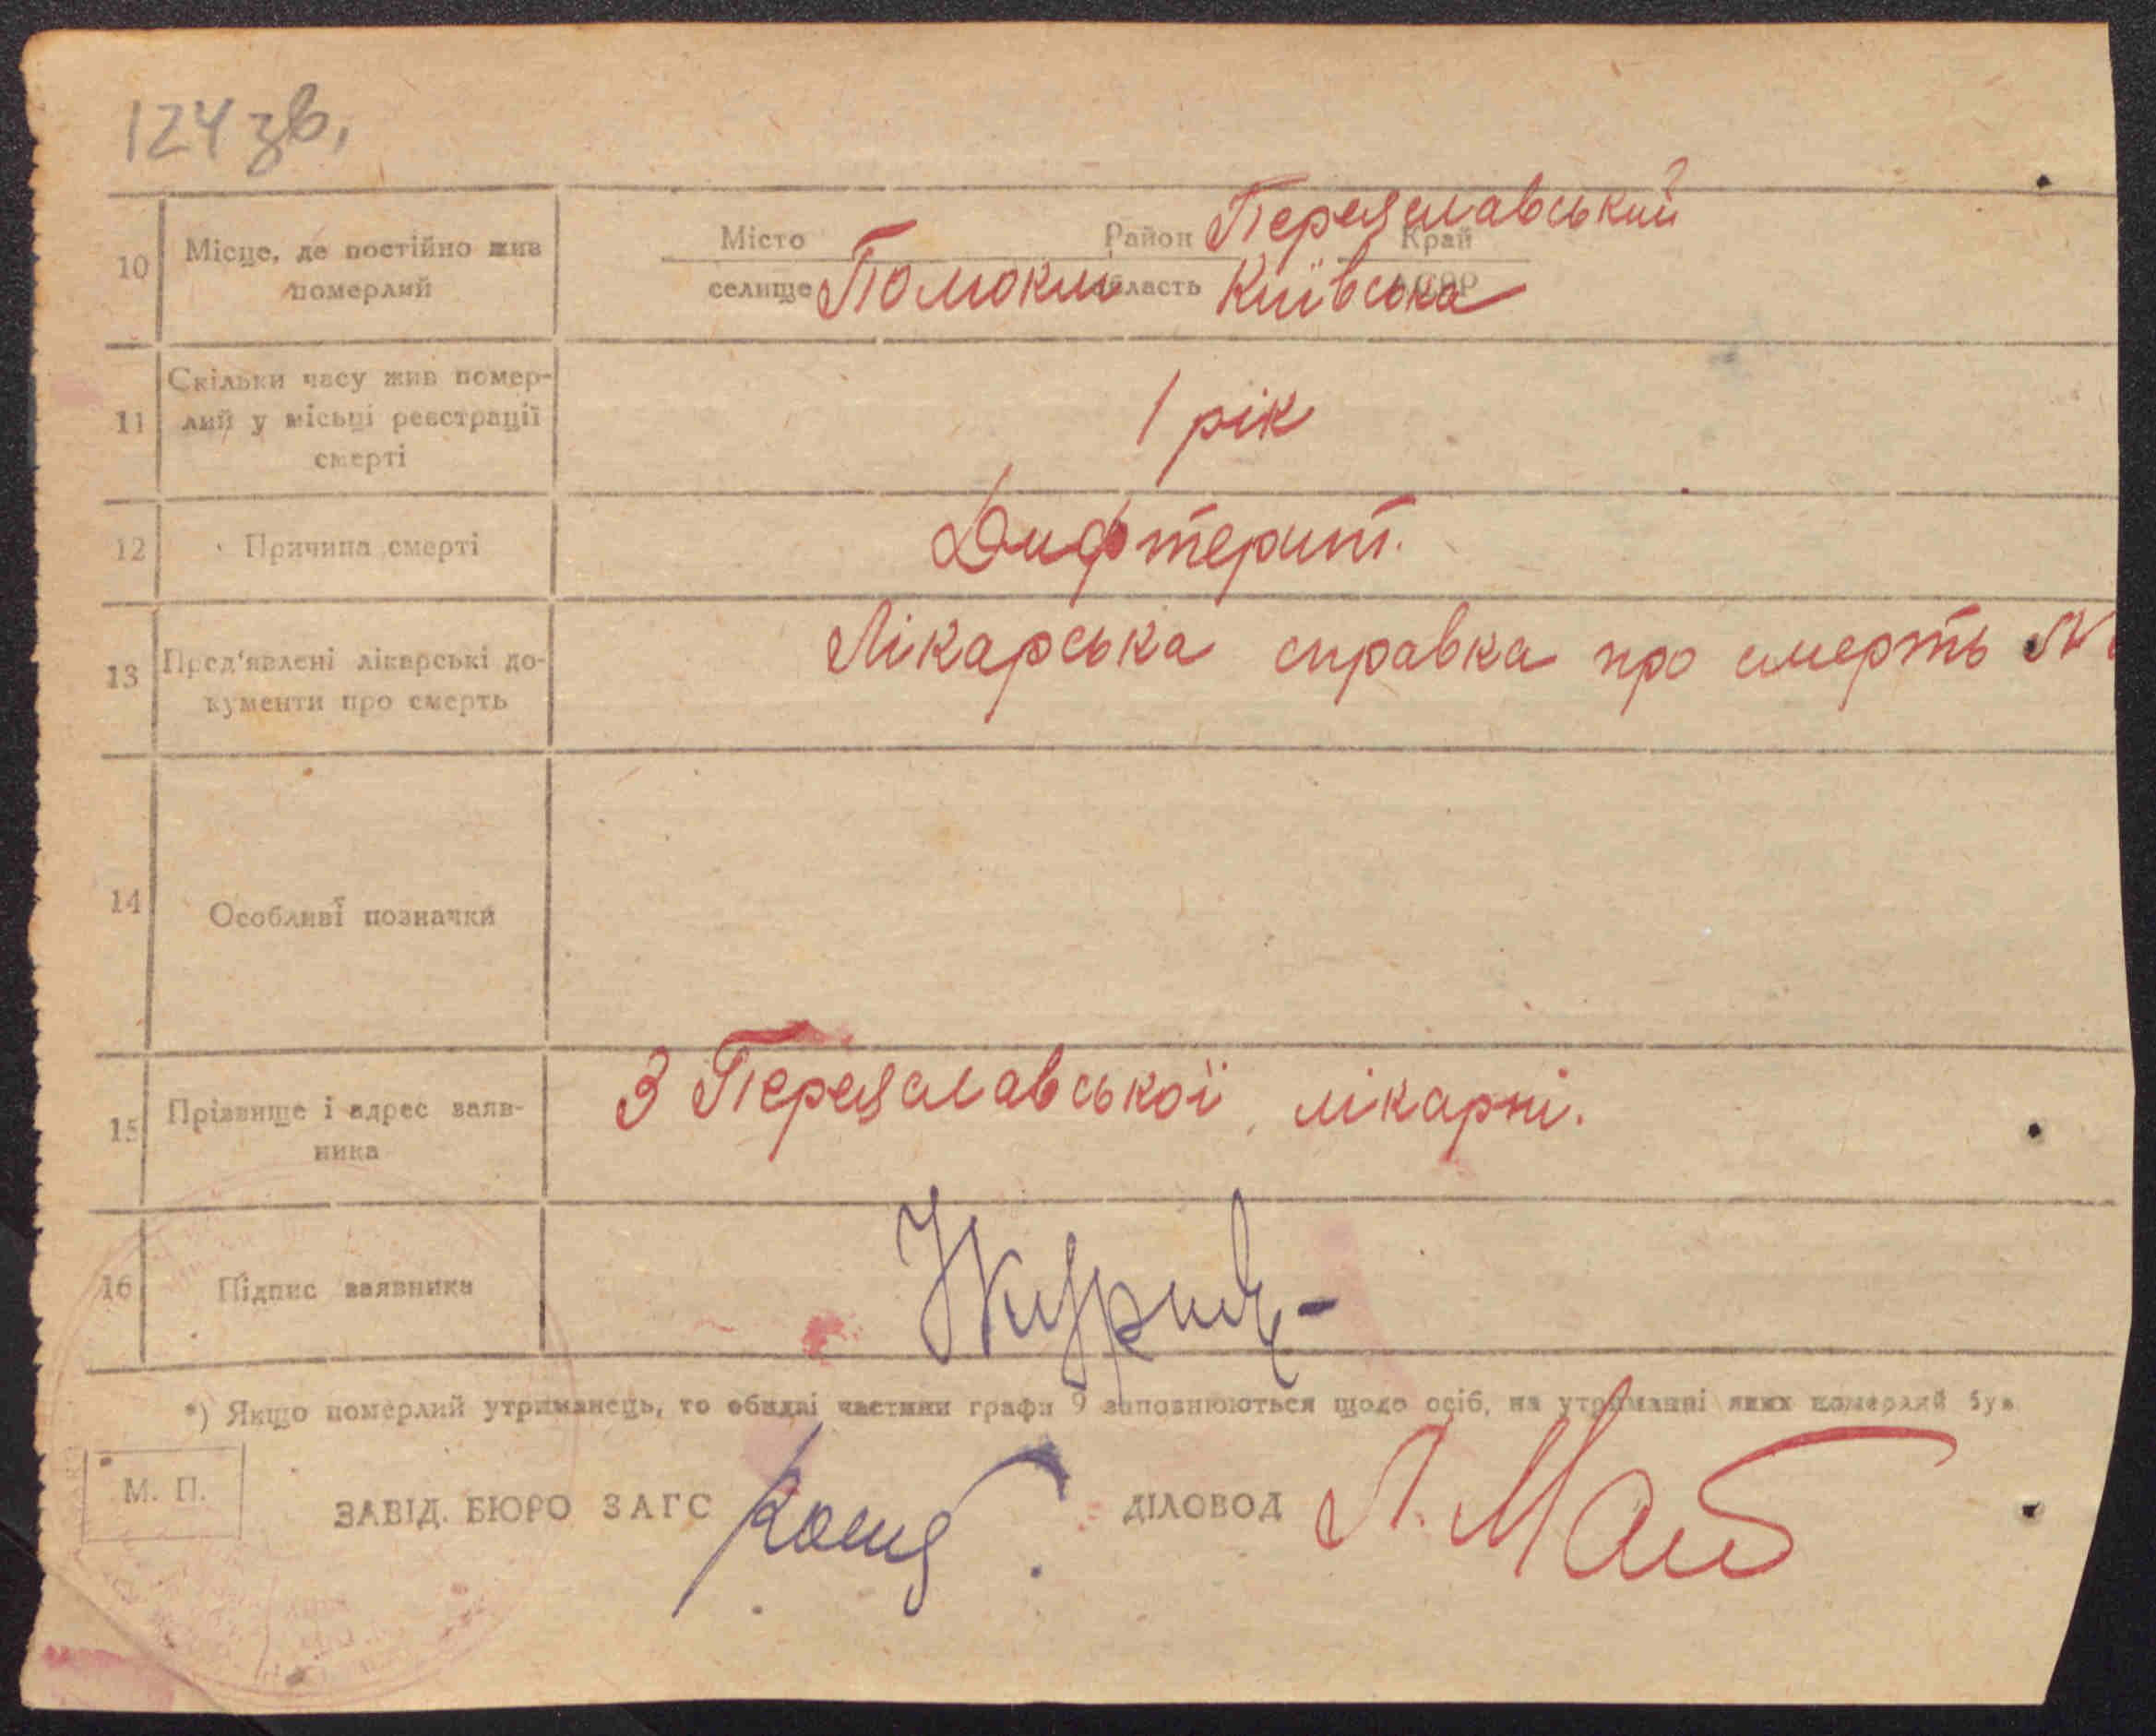 124 зв.
10 Місце, де постійно жив померлий
Місто Район Переяславський Край
селище Помоклі область Київська АСРР
11 Скільки часу жив помер-
лий у місьці реєстрації
смерті
1 рік
12 Причина смерті
Дифтерит.
13 Пред'явлені лікарські до-
кументи про смерть
Лікарська справка про смерть №
14 Особливі позначки
15 Прізвище і адрес заяв-
ника
З Переяславської лікарні.
16 Підпис заявника
*) Якщо померлий утриманець, то обидві частини графи 9 заповнюються щодо осіб, на утриманні яких померлий був
М. П.
ЗАВІД. БЮРО ЗАГС ДІЛОВОД Л.